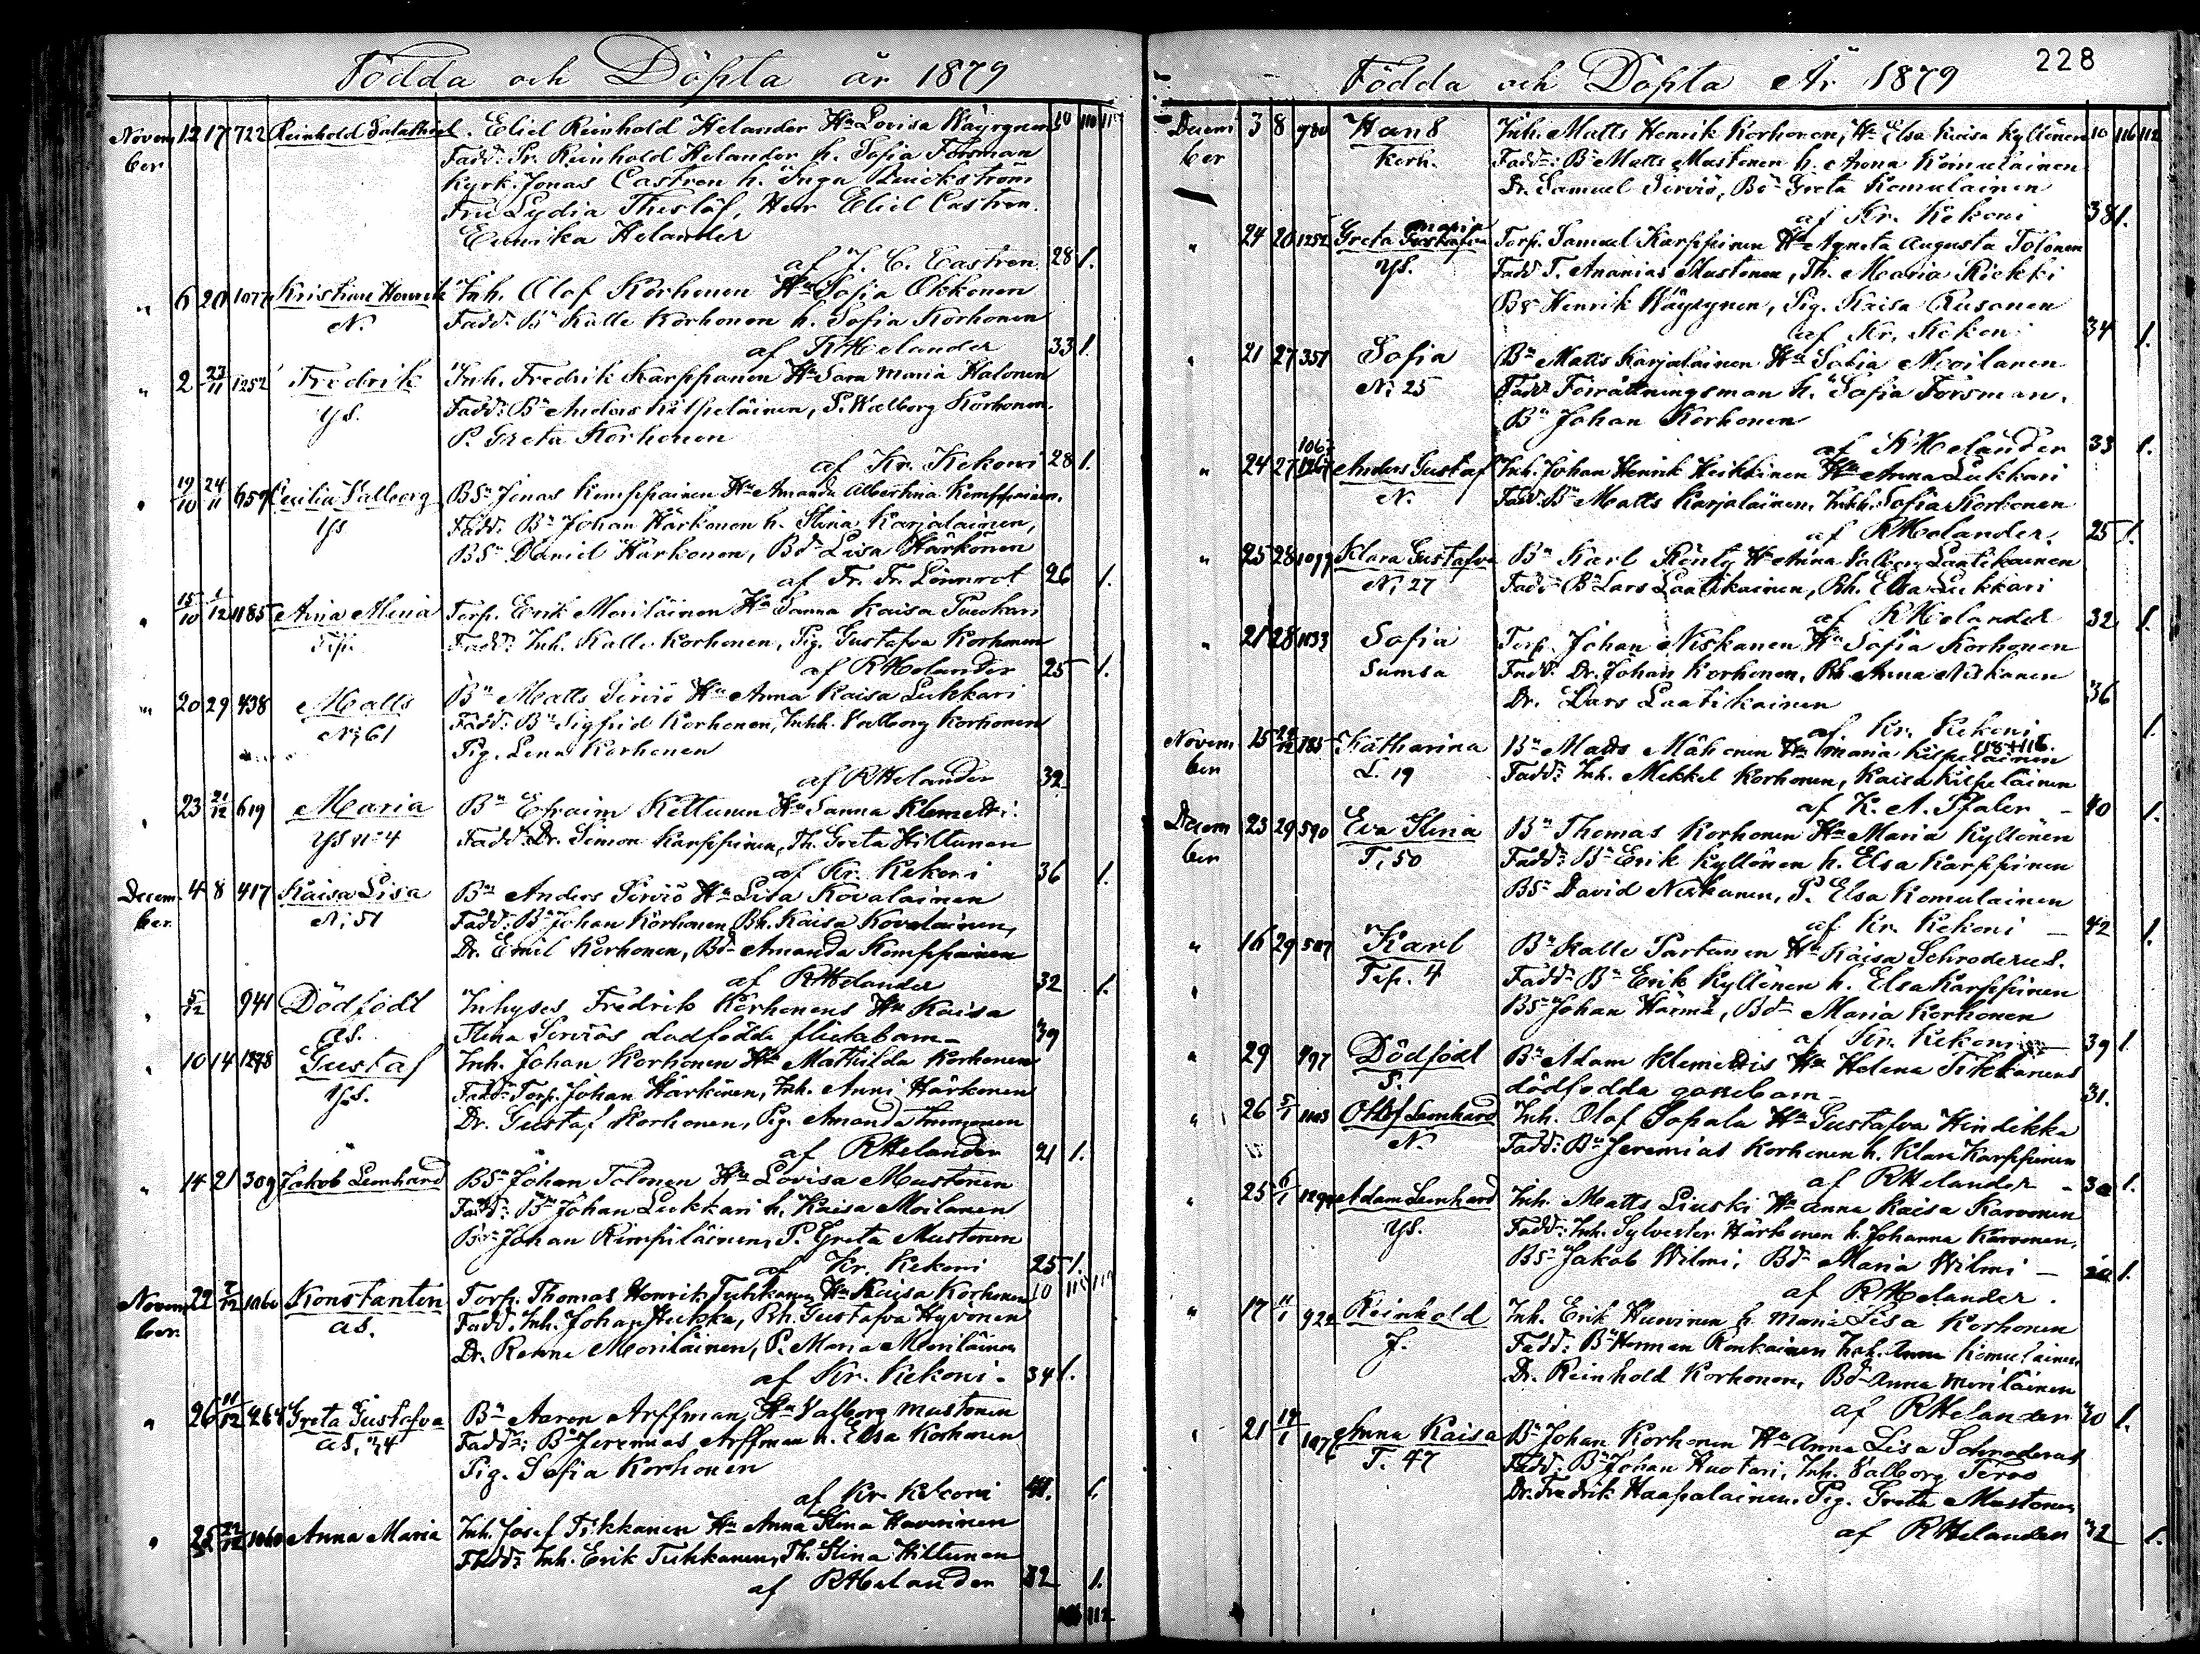 Födda och Döpta år 1879
Novem 12 17 722 Reinhold Eliel Reinhold Helander Hu Lovisa Wäyrynen
ber Fadd: Pr. Reinhold Helander h. Sofia Forsman
Kyrk. Jonas Castren h. Inga
Fru Lydia Theslöf, Herr Eliel Castren
Eunika Helander
af J. C. Castren 28 1.
" 6 20 1077 Kristian Henrik Inh. Olof Korhonen Hu Sofia Okkonen
N. Fadd: Bn Kalle Korhonen h. Sofia Korhonen
af RHelander 33 1.
" 2 23/11 1252 Fredrik Inh. Fredrik Karppanen Hu Sara Maria Halonen
Ys. Fadd: Bn Anders Kilpeläinen, P. Walborg Korhonen.
P. Greta Korhonen
af Kr. Kekoni 28 1.
" 19/10 24/11 659 Cecilia Valborg BSn Jonas Kemppainen Hu Amanda Albertina Kemppainen.
Ys Fadd: Bn Johan Härkönen h. Stina Karjalainen,
BSn Daniel Härkönen, Bd Lisa Härkönen
af Fr. Fr. Lönnrot 26 1.
" 15/10 1/12 1185 Aina Torp. Erik Moriläinen Hu Sanna Kaisa
Fadd: Inh. Kalle Korhonen, Pig. Gustafva Korhonen
af RHelander 25 1.
" 20 29 438 Matts Bn Matts Serviö Hu Anna Kaisa Lukkari
N; 61 Fadd: Bn Sigfrid Korhonen, Inhh. Valborg Korhonen
Pig. Lena Korhonen
af RHelander 32
" 23 21/12 619 Maria Bn Efraim Keltunen Hu Sanna Klemetti
Ys n:o 4 Fadd: Dr. Simon Karppinen, Th. Greta Hiltunen
af Kr. Kekoni 36 1.
Decem 4 8 417 Kaisa Lisa Bn Anders Serviö Hu Lisa Kovalainen
ber N; 51 Fadd: Bn Johan Korhonen Bh. Kaisa Kovalainen,
Dr. Emil Korhonen, Bd Amanda Kemppainen
af RHelander 32 1.
" 5/12 941 Dödfödt Inhyses Fredrik Korhonens Hu Kaisa
as. Stina Serviös dödfödda flickabarn 39
" 10 14 1278 Gustaf Inh. Johan Korhonen Hu Mathilda Korhonen
Ys. Fadd: Torp. Johan Härkönen, Inh. Anni Härkönen
Dr. Gustaf Korhonen, Pig. Amanda Immonen
af RHelander 21 1.
" 14 21 309 Jakob Leonhard BSn Johan Tolonen Hu Lovisa Mustonen
Fadd: Bn Johan Lukkari h. Kaisa Moilanen
BSn Johan Kimpiläinen, P. Greta Mustonen
af Kr. Kekoni 25 1.
Novem 22 7/12 1060 Konstantin Torp. Thomas Henrik Tuhkanen Hu Kaisa Korhonen
ber as. Fadd: Inh. Johan Hukka, Bh. Gustafva Hyvönen
Dr. Moriläinen, P. Maria Moriläinen
af Kr. Kekoni. 34 1.
" 26 11/12 Greta Gustafva Bn Aaron Arffman Hu Valborg Mustonen
as, 34 Fadd: Bn Jeremias Arffman h. Elsa Korhonen
Pig. Sofia Korhonen
af Kr. Kekoni 1.
" 25 1060 Anna Maria Inh. Josef Tikkanen Hu Anna Stina Huovinen
Fadd: Inh. Erik Tuhkanen, Th. Stina Hiltunen
af RHelander 32 1.
112
228
Födda och Döpta År 1879
Decem 3 8 Hans Inh. Matts Henrik Korhonen, Hu Elsa Kaisa Kyllönen 10 116 112
ber Korh. Fadd: Bn Matts Mustonen h. Anna Komulainen
Dr. Samuel Serviö, Bd Greta Komulainen
af Kr. Kekoni 38 1.
" 24 26 1252 Greta Maria Torp. Samuel Karppinen Hu Agneta Augusta Tolonen
Ys. Fadd: T. Ananias Mustonen, Th. Maria Riekki
BS Henrik Wäyrynen, Pig. Kaisa Rusanen
af Kr. Kekoni 34 1.
" 21 27 351 Sofia Bn Matts Karjalainen Hu Sofia Moilanen
N; 25 Fadd: Förrättningsman h. Sofia Forsman.
Bn Johan Korhonen
af RHelander 33 1.
" 24 27 1067 Anders Gustaf Inh. Johan Henrik Heikkinen Hu Anna Lukkari
N. Fadd: Bn Matts Karjalainen, Inhh. Sofia Korhonen
af RHelander. 25 1.
" 25 28 1077 Klara Gustafva Bn Karl Hu Anna Valborg Laatikainen
N; 27 Fadd: Bn Lars Laatikainen, Bh. Elsa Lukkari
af RHelander 32 1.
" 21 28 1133 Sofia Torp. Johan Niskanen Hu Sofia Korhonen
Sumsa Fadd: Dr. Johan Korhonen, Bh. Anna Niskanen
Dr. Lars Laatikainen 36
af Kr. Kekoni 1.
Novem 15 785 Katharina Bn Matts Mähönen Hu Maria Kilpeläinen
ber L. 19 Fadd: Inh. Mikkel Korhonen, Kaisa Kilpeläinen
af K. A. Pfaler 40 1.
Decem 23 29 590 Eva Stina Bn Thomas Korhonen Hu Maria Kyllönen
ber T; 50 Fadd: Bn Erik Kyllönen h. Elsa Karppinen
BSn David Niskanen, P. Elsa Komulainen
af Kr. Kekoni 42 1.
" 16 29 587 Karl Bn Kalle Partanen Hu Kaisa Schroderus.
Tip. 4 Fadd: Bn Erik Kyllönen h. Elsa Karppinen
BSn Johan Härmä, Bd Maria Korhonen
af Kr. Kekoni 39 1.
" 29 497 Dödfödt Bn Adam Klemettis Hu Helena Tikkanens
dödfödda gossebarn 31.
" 26 5/1 Olof Leonhard Inh. Olof Sopala Hu Gustafva Hindikka
N. Fadd: Bn Jeremias Korhonen h. Klara Karppinen
af RHelander 1.
" 25 6/1 Adam Leonhard Inh. Matts Liuski Hu Anna Kaisa Karvonen
Ys. Fadd: Inh. Sylvester Härkönen h. Johanna Karvonen,
BSn Jakob Wilmi, Bd Maria Wilmi 1.
af RHelander.
" 17 11/1 922 Reinhold Inh. Erik Huovinen h. Maria Lisa Korhonen
J. Fadd: Bn Herman Ronkainen Inh. Anna Komulainen
Dr. Reinhold Korhonen, Bd Anna Moriläinen
af RHelander 30 1.
" 21 Anna Kaisa Bn Johan Korhonen Hu Anna Lisa Schroderus
T. 47 Fadd: Bn Johan Huotari, Inh. Valborg Tervo
Dr. Fredrik Haapalainen, Pig. Greta Mustonen
af RHelander 32 1.